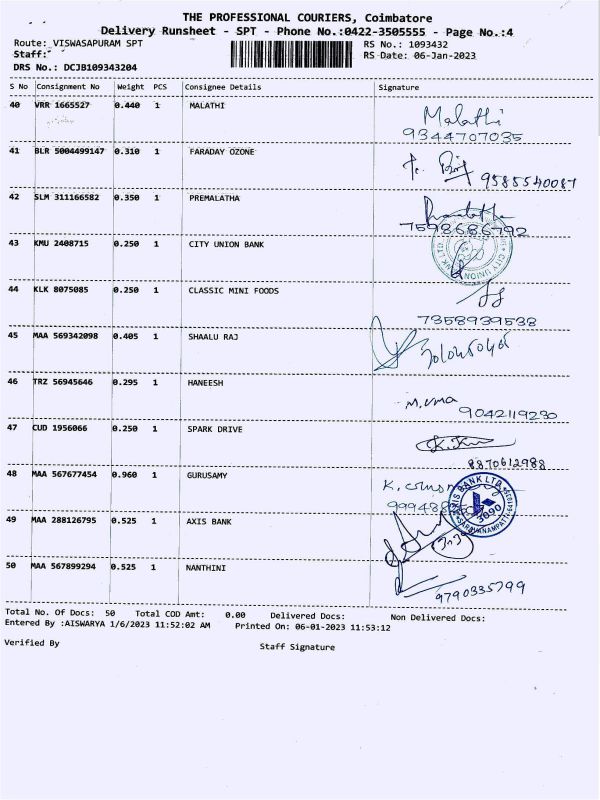 THE PROFESSIONAL COURIERS, Coimbatore
Delivery Runsheet - SPT - Phone No.:0422-3505555 - Page No.:4
Route: VISWASAPURAM SPT RS No.: 1093432
Staff: RS Date: 06-Jan-2023
DRS No.: DCJB109343204
S No Consignment No Weight PCS Consignee Details Signature
40 VRR 1665527 0.440 1 MALATHI Malathi
9344707035
41 BLR 5004499147 0.310 1 FARADAY OZONE
9585540087
42 SLM 311166582 0.350 1 PREMALATHA Premalatha
7598686792
43 KMU 2408715 0.250 1 CITY UNION BANK CITY UNION BANK LTD
44 KLK 8075085 0.250 1 CLASSIC MINI FOODS
7358939538
45 MAA 569342098 0.405 1 SHAALU RAJ
46 TRZ 56945646 0.295 1 HANEESH M.UMA
9042119230
47 CUD 1956066 0.250 1 SPARK DRIVE
8870612988
48 MAA 567677454 0.960 1 GURUSAMY
AXIS BANK LTD. 3090 SARAVANAMPATTI
49 MAA 288126795 0.525 1 AXIS BANK
50 MAA 567899294 0.525 1 NANTHINI
9790335799
Total No. Of Docs: 50 Total COD Amt: 0.00 Delivered Docs: Non Delivered Docs:
Entered By :AISWARYA 1/6/2023 11:52:02 AM Printed On: 06-01-2023 11:53:12
Verified By Staff Signature